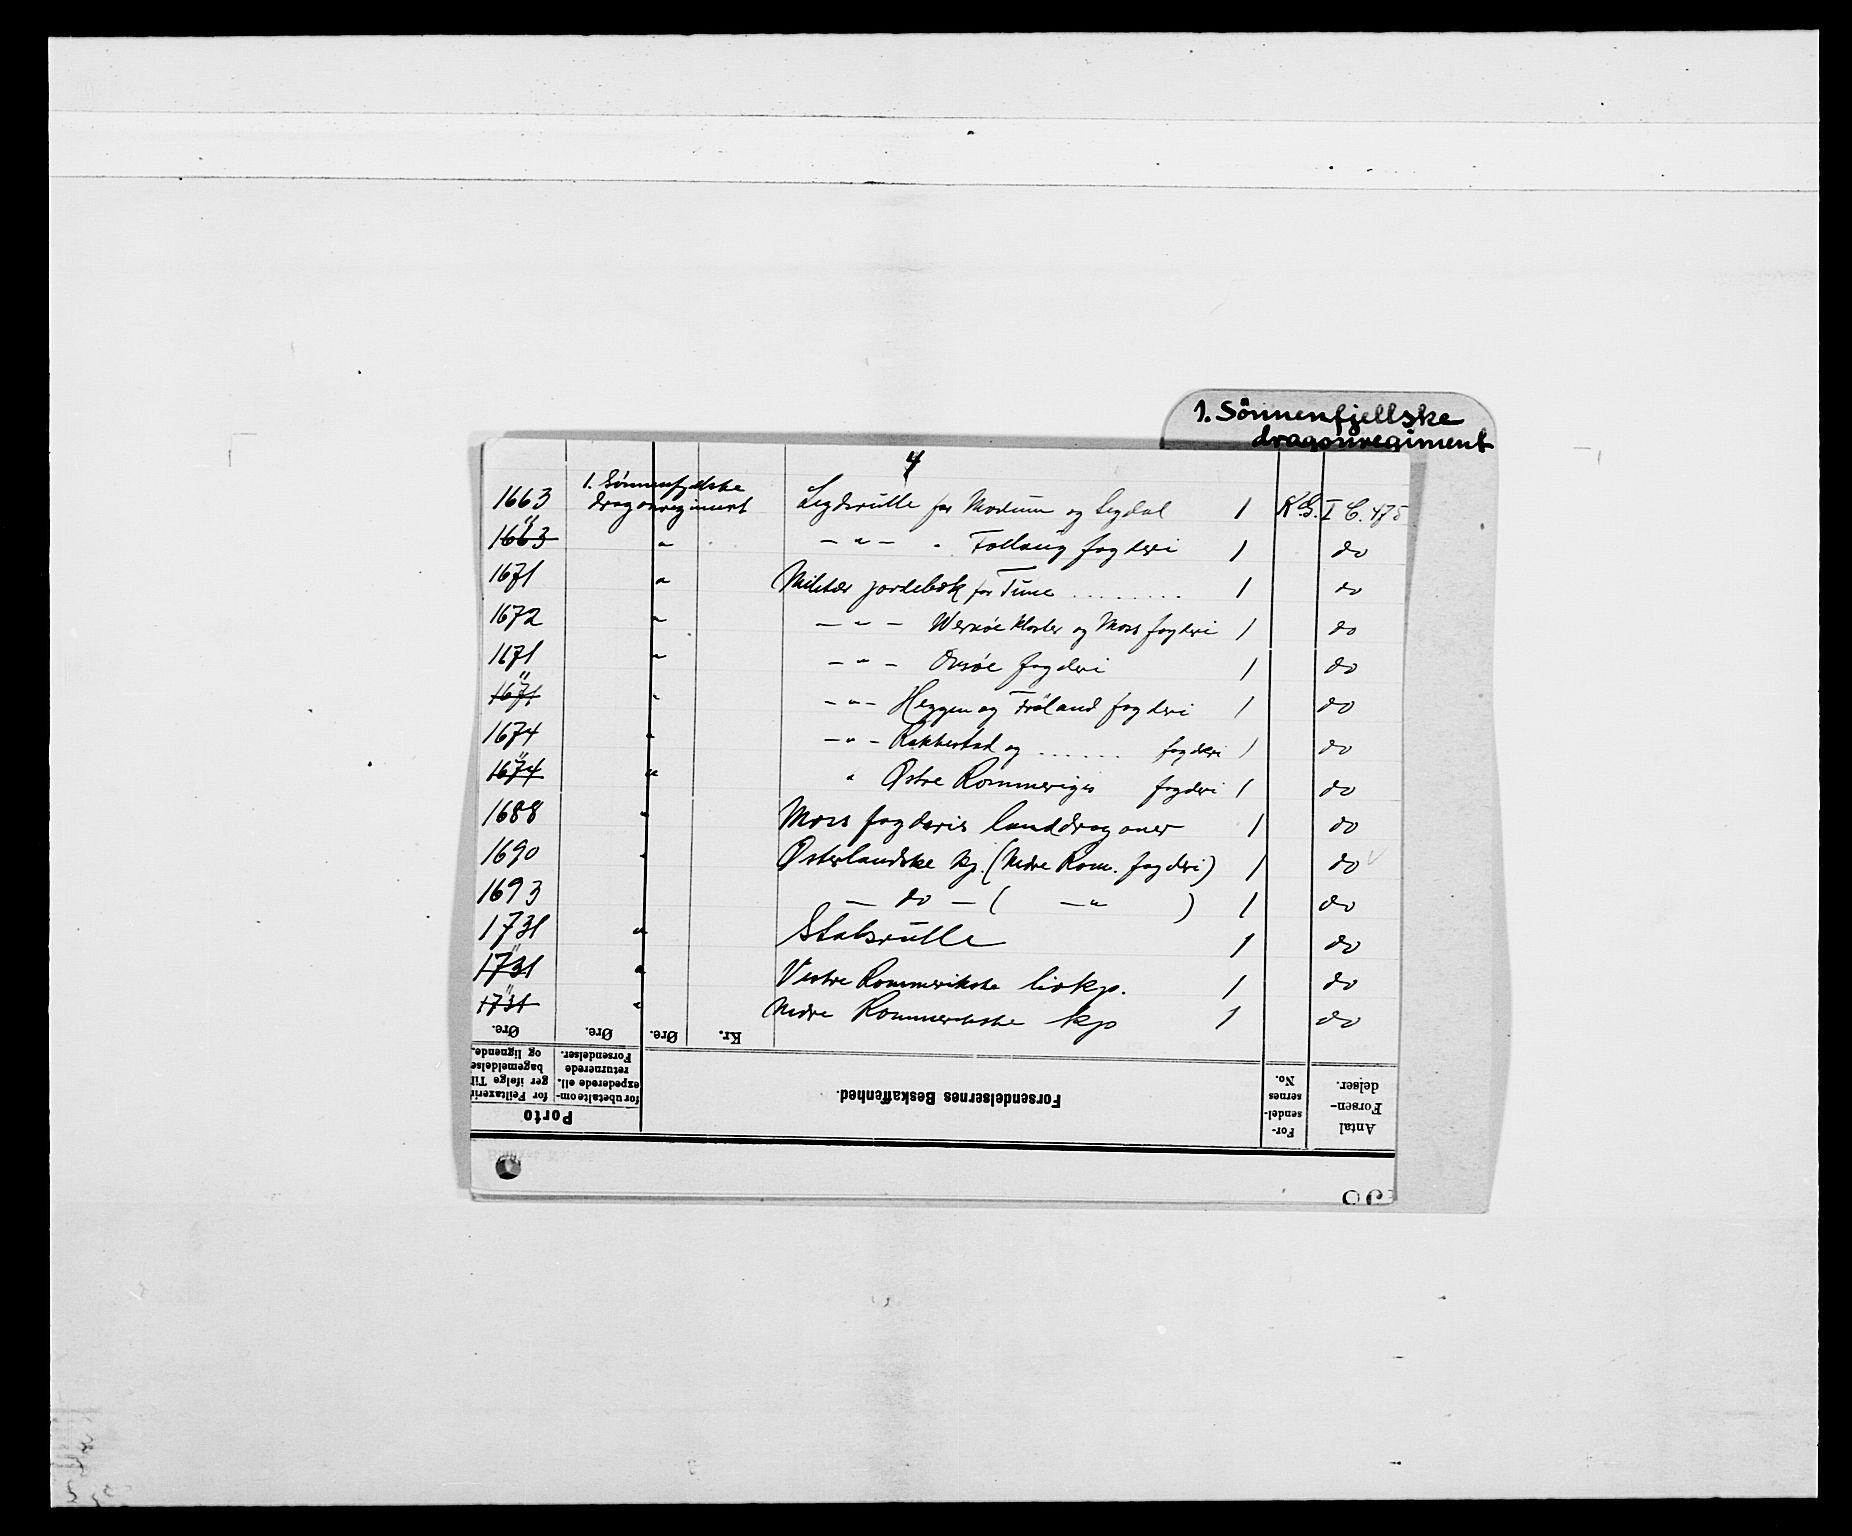 1. Sönnenfjellske
dragonregiment
4
1663 1. Sønnenfjelske dragonregiment Legdsrulle for Modum og Sigdal 1 KB. I C. 478
1663 " " — " — " Follaug fogderi 1 do
1671 " Militær jordebok for Tune ........ 1 do
1672 " — " — Wernöe kloster og Moss fogderi 1 do
1671 " — " — Onsöe fogderi 1 do
1671 " " — " — Heggen og Fröland fogderi 1 do
1674 " — " — Rakkestad og ...... fogderi 1 do
1674 " " " Østre Rommeriges fogderi 1 do
1688 " Moss fogderis landdragoner 1 do
1690 " Østerlandske kp. (Nedre Rom. fogderi) 1 do
1693 — do — ( — " ) 1 do
1731 " Stabsrulle 1 do
1731 " " Vestre Rommerikske livkp. 1 do
1731 " " Nedre Rommerikske kp 1 do
Øre. Øre. Øre. Kr.
Porto
for Feiltaxerin
ger ifølge Til
bagemeldelse
og lignende.
for ubetalte om-
expederede ell.
returnerede
Forsendelser.
Forsendelsernes Beskaffenhed.
For-
sendel-
sernes
No.
Antal
Forsen-
delser.